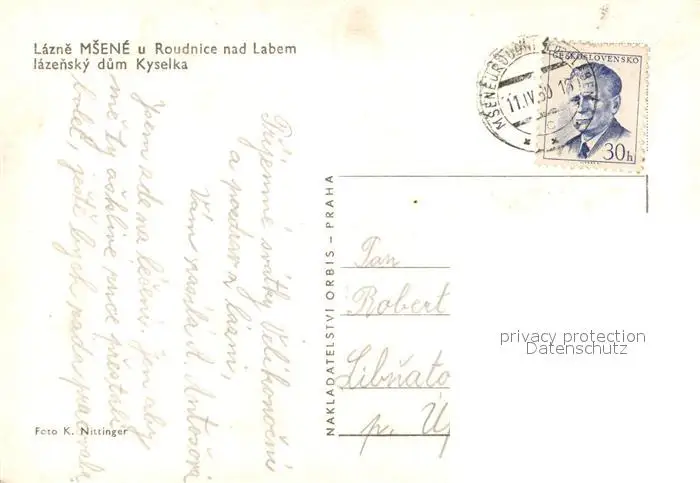 Lázně MŠENÉ u Roudnice nad Labem
lázeňský dům Kyselka
MŠENÉ U ROUDNICE
11.IV.60
C
ČESKOSLOVENSKO
30h
Příjemné svátky Velikonoční
a pozdrav z lázní,
Vám zasílá A. Antošová
Jsem zde na léčení. Jen aby
mě ty ošklivé ruce přestaly
bolet, ještě bych ráda pracovala.
NAKLADATELSTVÍ ORBIS – PRAHA
Pan
Robert
Libňato
p. Ú
privacy protection
Datenschutz
Foto K. Nittinger